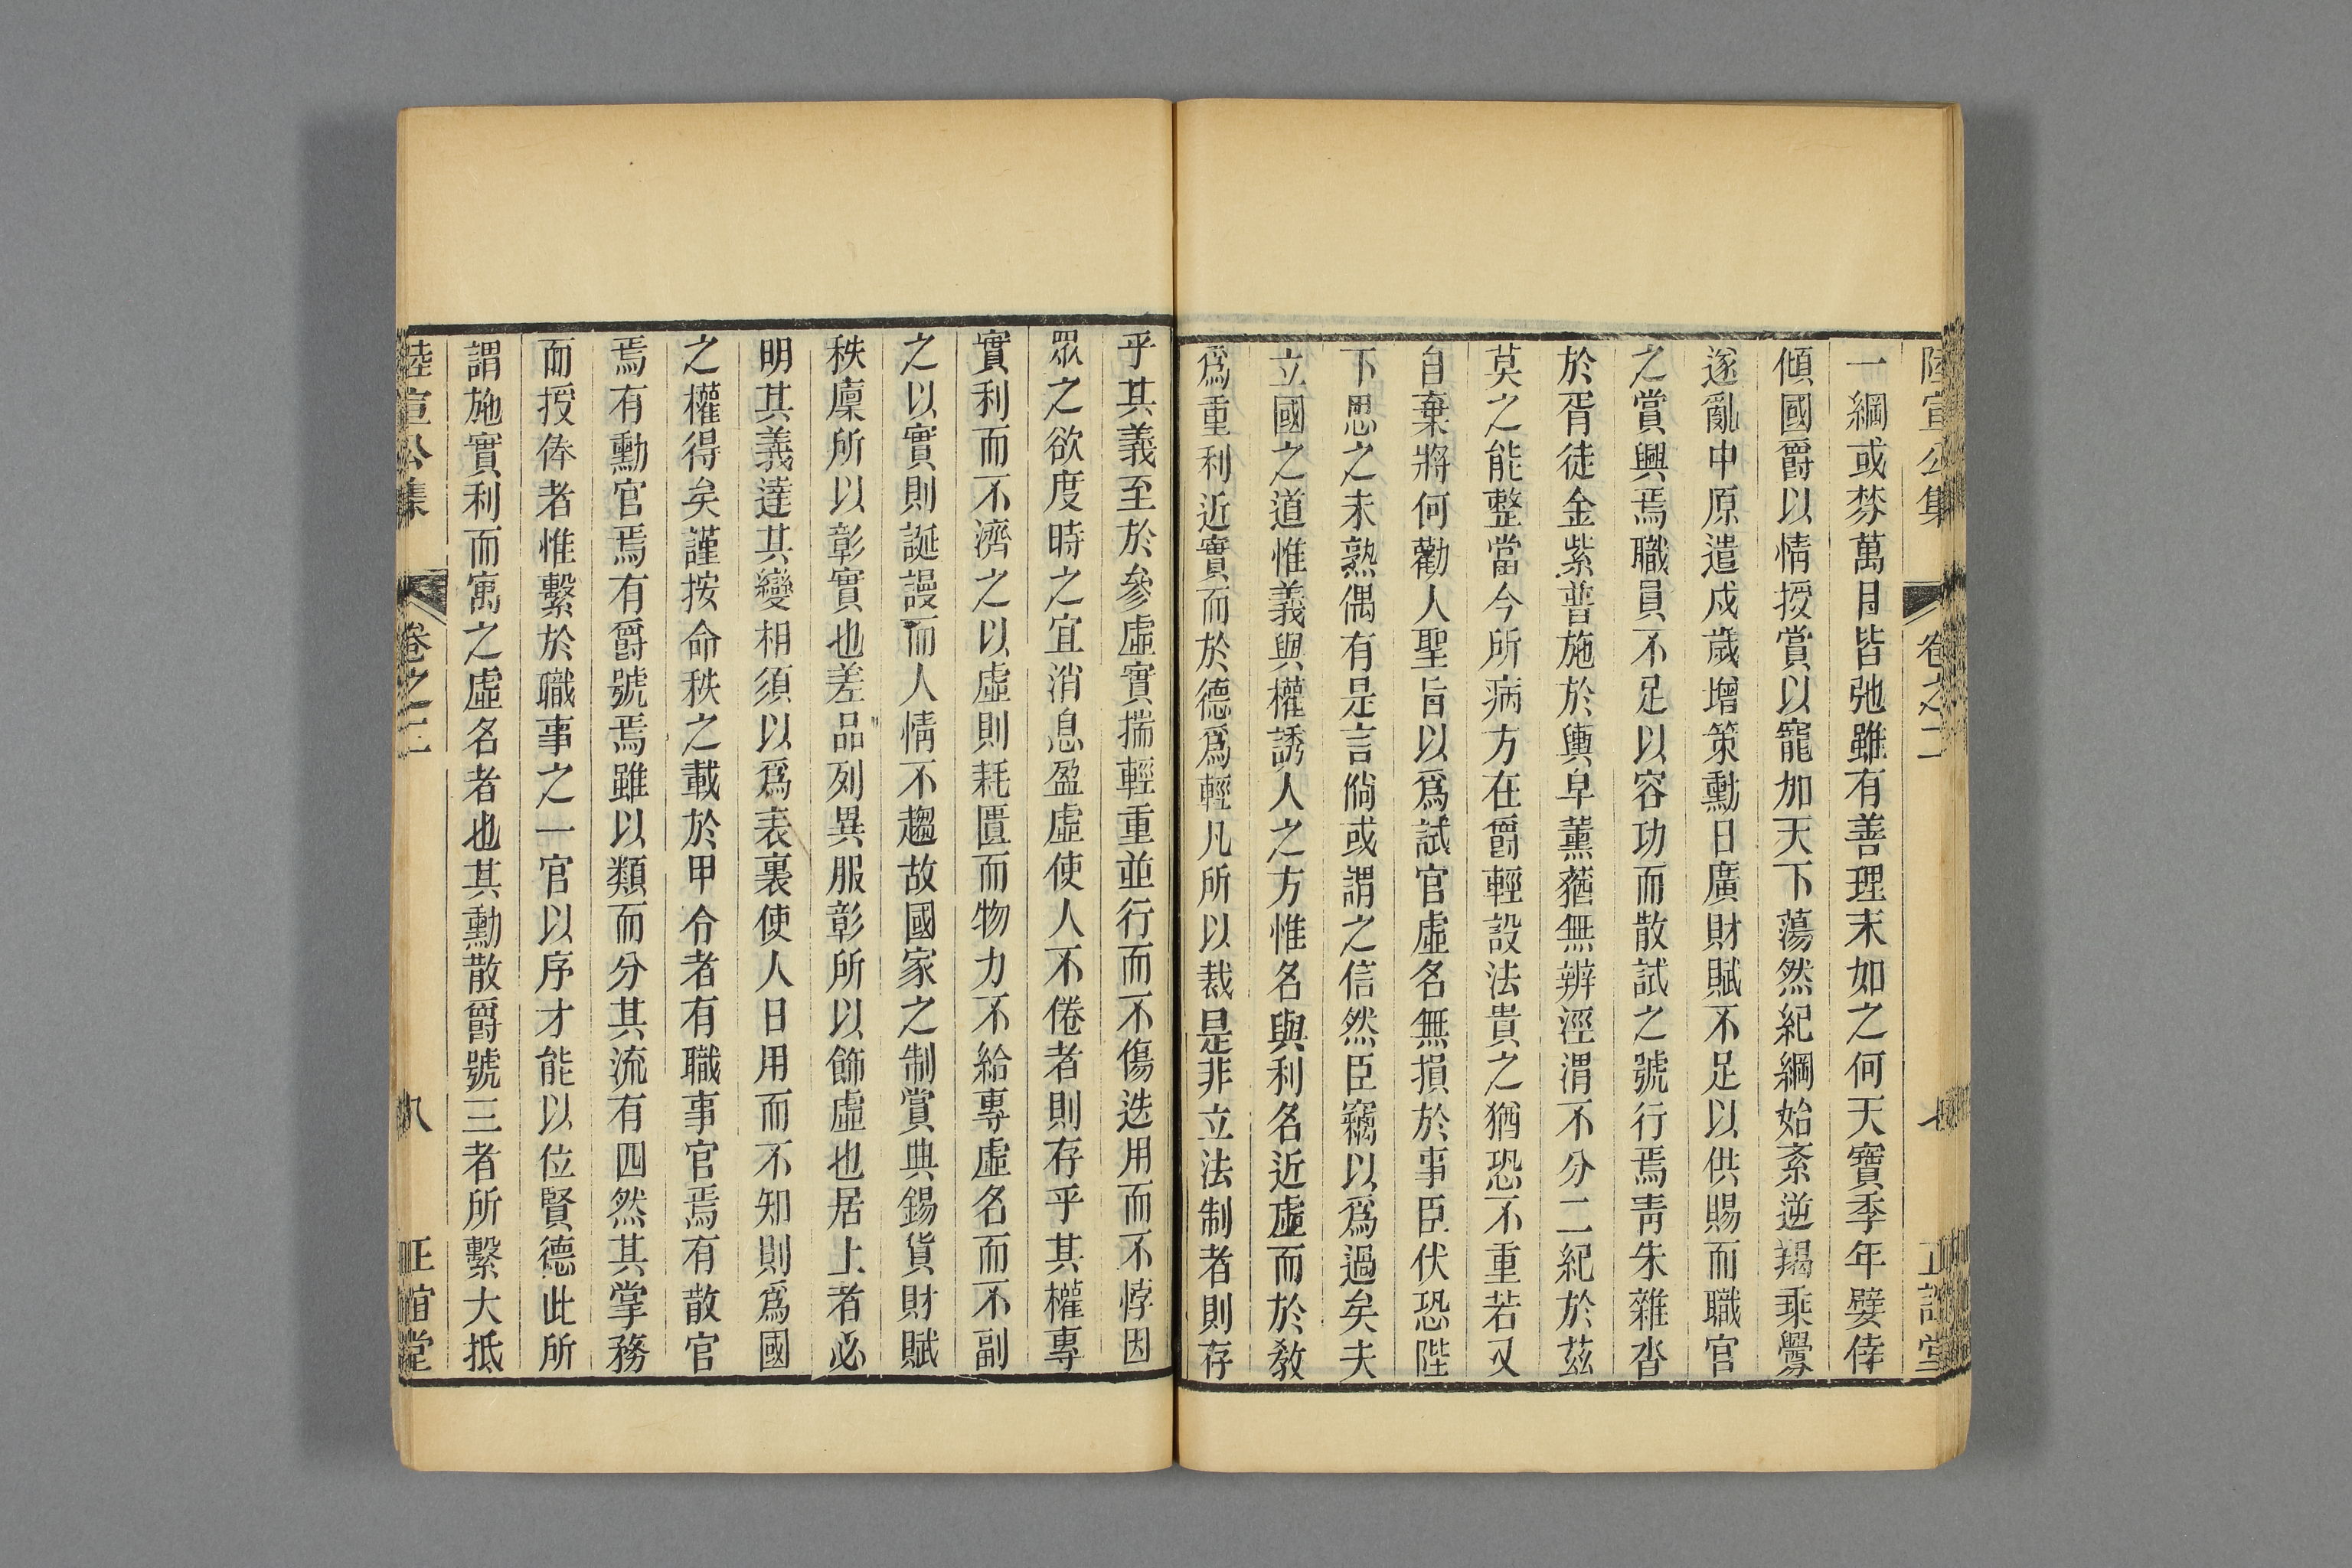 陸宣公集 卷之二 七 正誼堂
一綱或棼萬目皆弛雖有善理末如之何天寶季年嬖倖
傾國爵以情授賞以寵加天下蕩然紀綱始紊逆羯乘釁
遂亂中原遣戍歲增策勳日廣財賦不足以供賜而職官
之賞興焉職員不足以容功而散試之號行焉靑朱雜沓
於胥徒金紫普施於輿皁薰蕕無辨涇渭不分二紀於茲
莫之能整當今所病方在爵輕設法貴之猶恐不重若又
自棄將何勸人聖旨以爲試官虛名無損於事臣伏恐陛
下思之未熟偶有是言倘或謂之信然臣竊以爲過矣夫
立國之道惟義與權誘人之方惟名與利名近虛而於敎
爲重利近實而於德爲輕凡所以裁是非立法制者則存
乎其義至於參虛實揣輕重並行而不傷迭用而不悖因
眾之欲度時之宜消息盈虛使人不倦者則存乎其權專
實利而不濟之以虛則耗匱而物力不給專虛名而不副
之以實則誕謾而人情不趨故國家之制賞典錫貨財賦
秩廩所以彰實也差品列異服彰所以飾虛也居上者必
明其義達其變相須以爲表裏使人日用而不知則爲國
之權得矣謹按命秩之載於甲令者有職事官焉有散官
焉有勳官焉有爵號焉雖以類而分其流有四然其掌務
而授俸者惟繫於職事之一官以序才能以位賢德此所
謂施實利而寓之虛名者也其勳散爵號三者所繫大抵
陸宣公集 卷之二 八 正誼堂